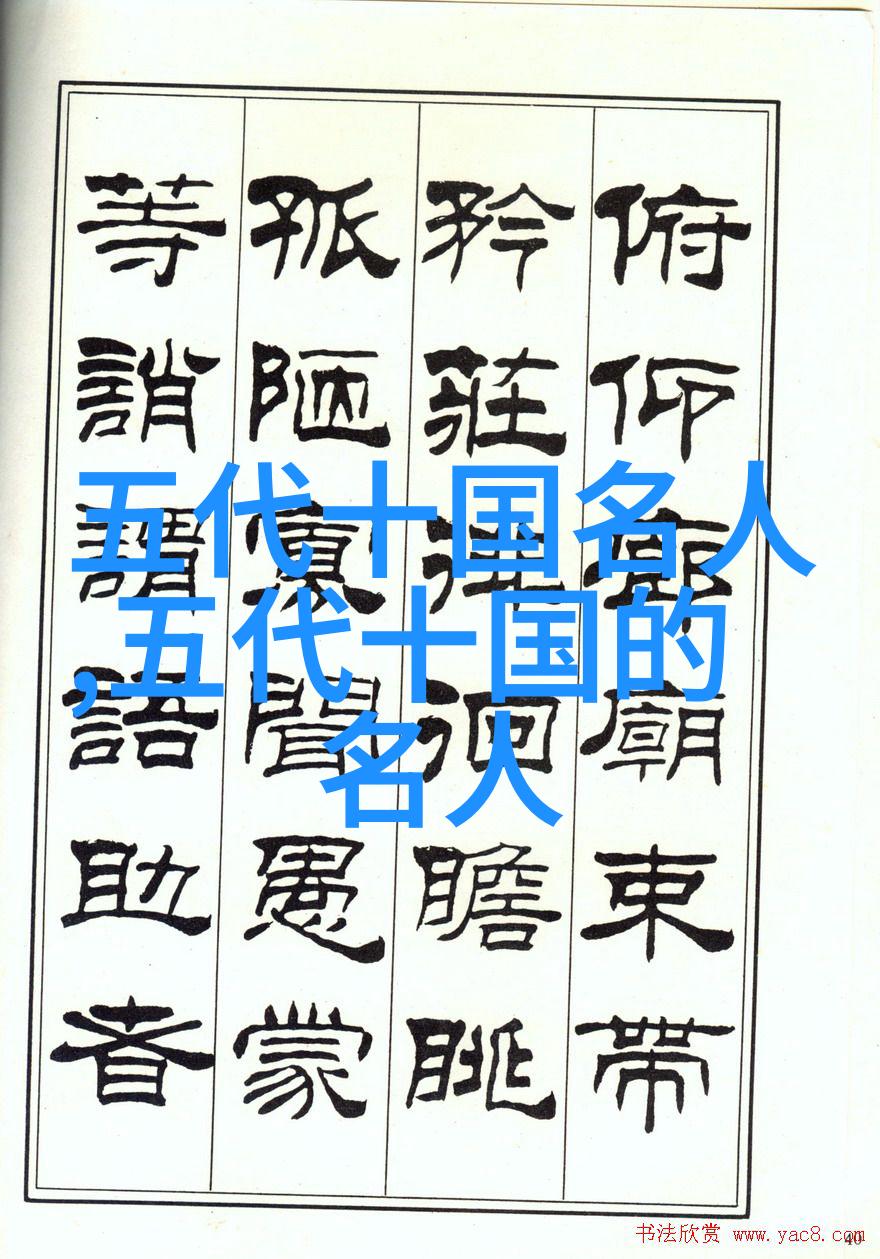 俯仰廊廟束帶
矜莊徘徊瞻眺
孤陋寡聞愚蒙
等誚謂語助者
五代十国名人
,五代十国的
名人
书法欣赏 www.yac8.com
40